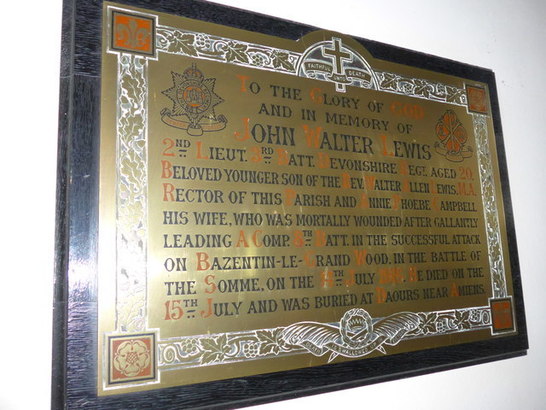 FAITHFUL UNTO DEATH
TO THE GLORY OF GOD
AND IN MEMORY OF
JOHN WALTER LEWIS
2ND LIEUT. 3RD BATT. DEVONSHIRE REGT. AGED 20.
BELOVED YOUNGER SON OF THE REV. WALTER ALLEN LEWIS. M.A.
RECTOR OF THIS PARISH AND ANNIE PHOEBE CAMPBELL
HIS WIFE, WHO WAS MORTALLY WOUNDED AFTER GALLANTLY
LEADING A COMP. 8TH BATT. IN THE SUCCESSFUL ATTACK
ON BAZENTIN-LE-GRAND WOOD. IN THE BATTLE OF
THE SOMME, ON THE 14TH JULY 1916. HE DIED ON THE
15TH JULY AND WAS BURIED AT DAOURS NEAR AMIENS.